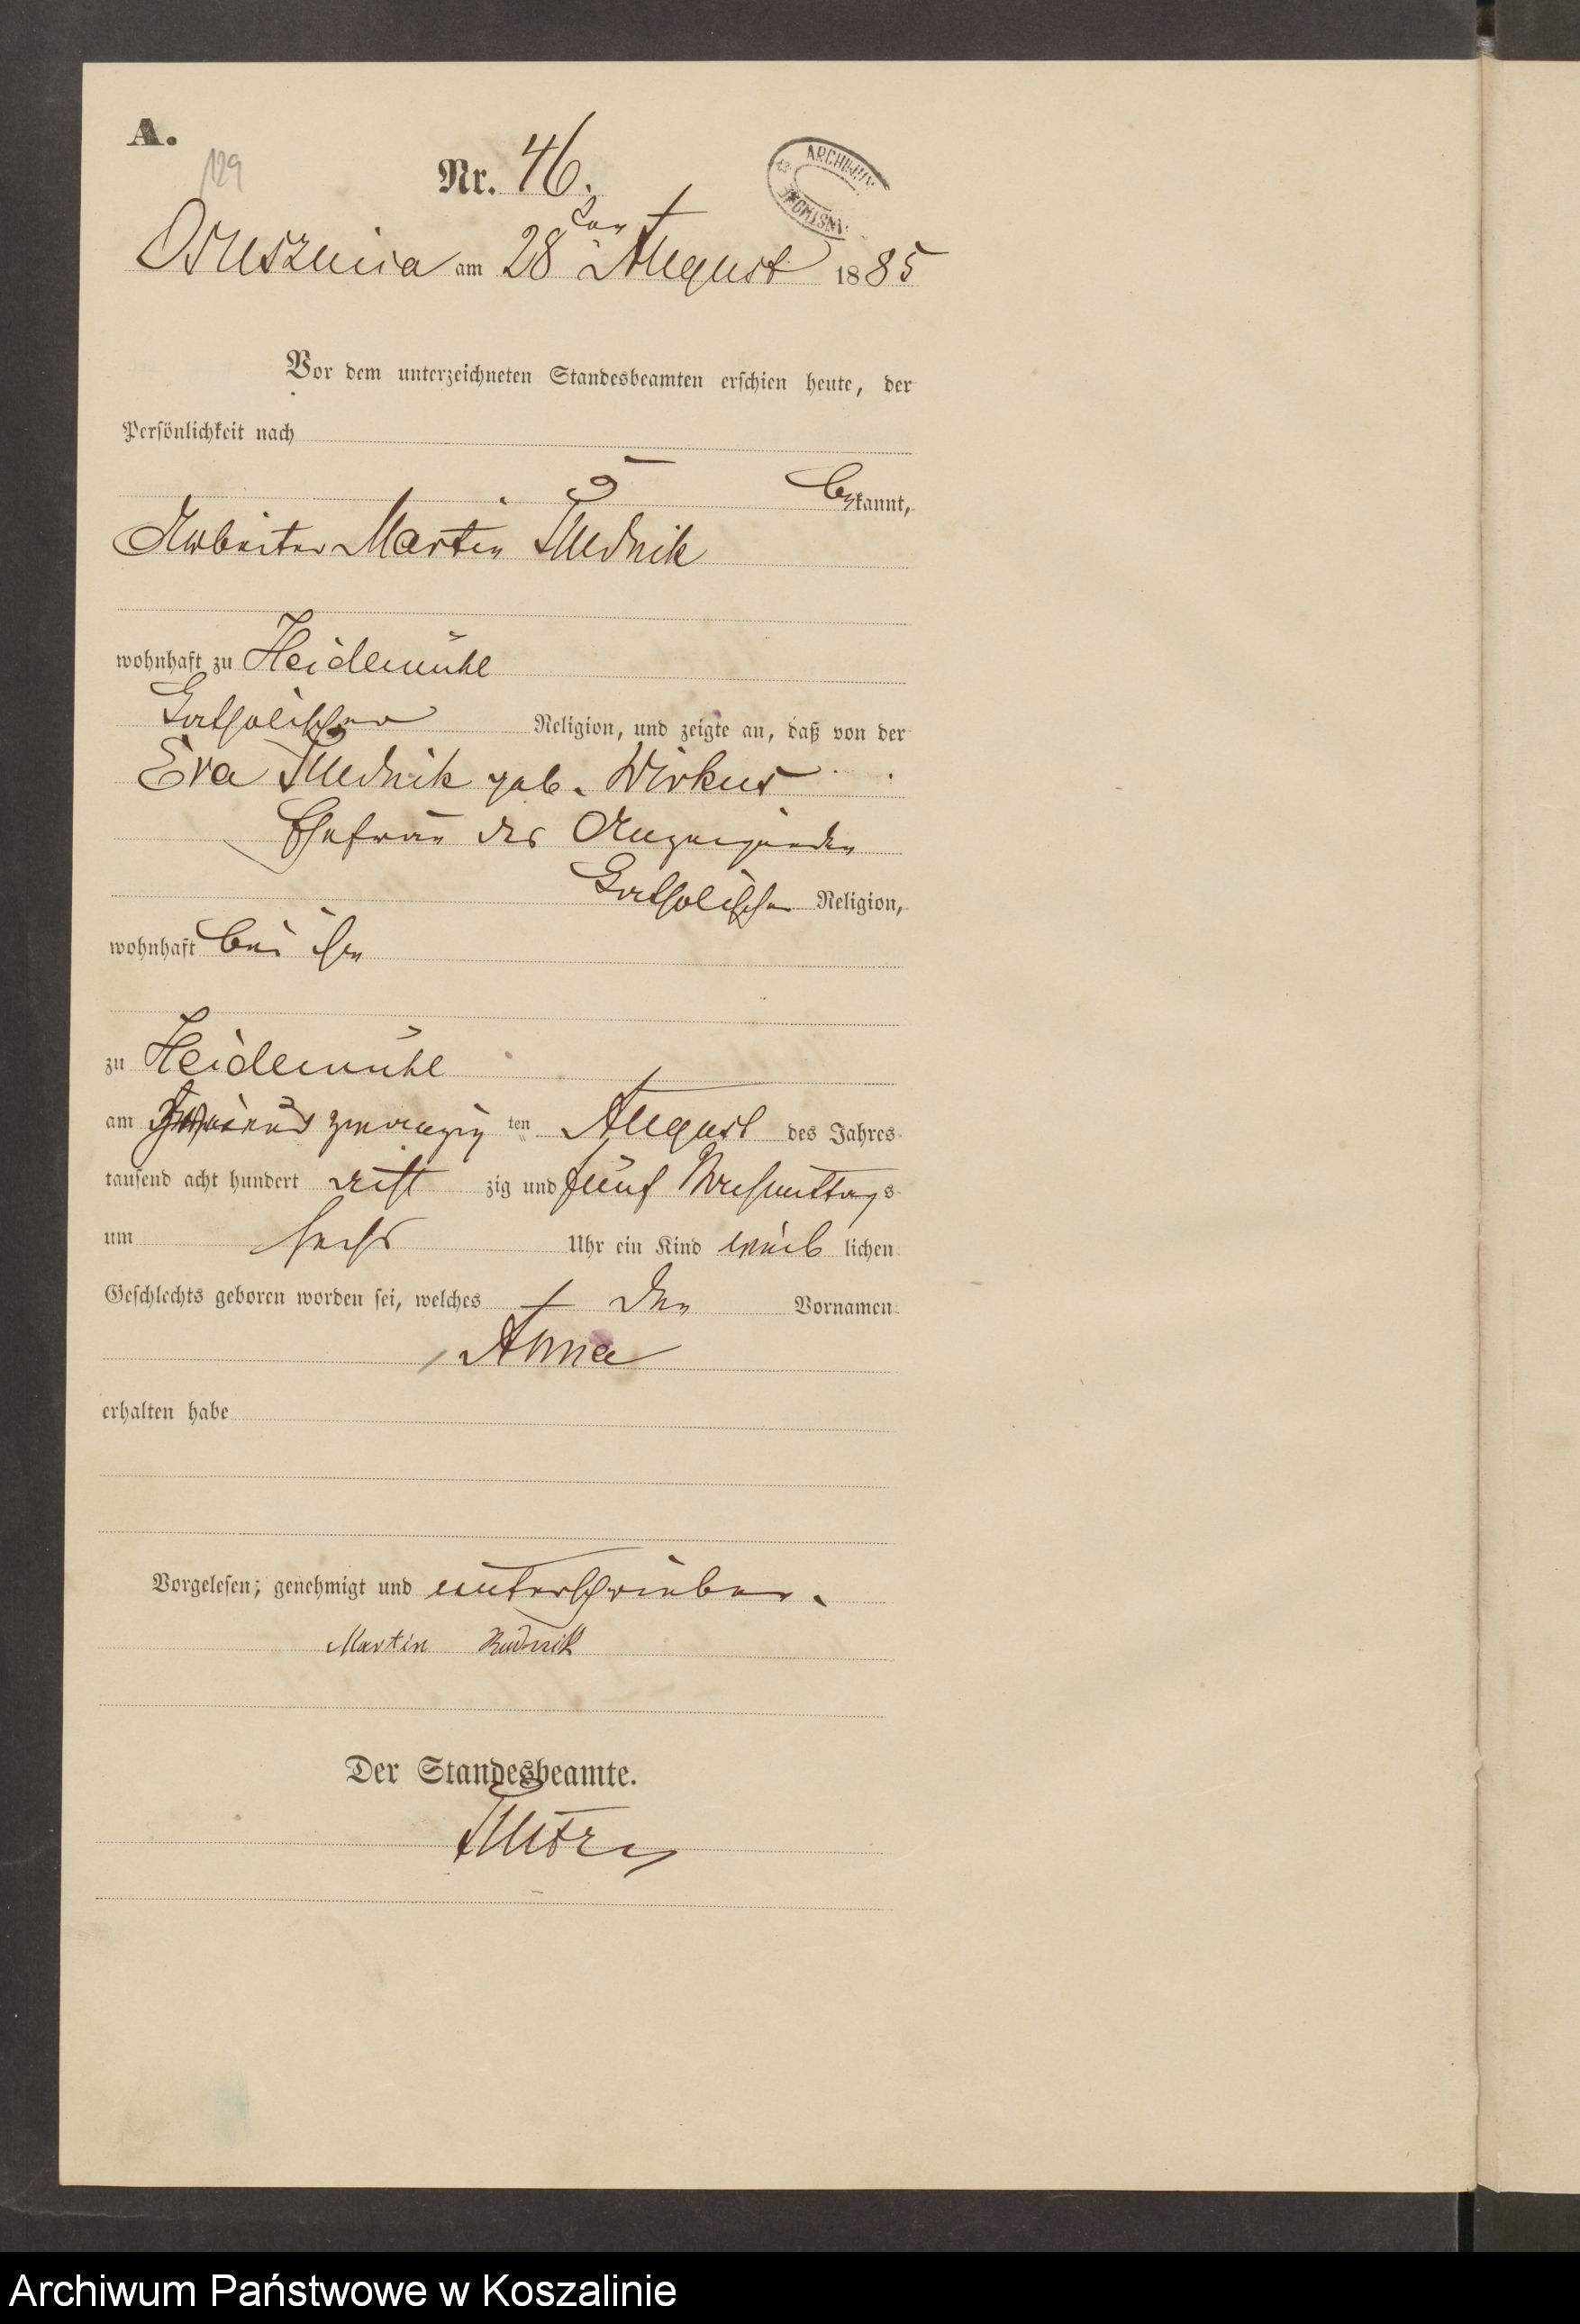 A.
129
Nr. 46.
ARCHIWUM
Osuszniza am 28 ten August 1885
Vor dem unterzeichneten Standesbeamten erschien heute, der
Persönlichkeit nach
bekannt,
Arbeiter Martin Rudnik
wohnhaft zu Heidemühl
katholischer Religion, und zeigte an, daß von der
Eva Rudnik geb. Wirkus
Ehefrau des Anzeigenden
katholischer Religion,
wohnhaft bei ihm
zu Heidemühl
am zwanzig ten August des Jahres
tausend acht hundert acht zig und fünf Nachmittags
um sechs Uhr ein Kind weib lichen
Geschlechts geboren worden sei, welches den Vornamen
Anna
erhalten habe
Vorgelesen, genehmigt und unterschrieben.
Martin Rudnik
Der Standesbeamte.
Archiwum Państwowe w Koszalinie